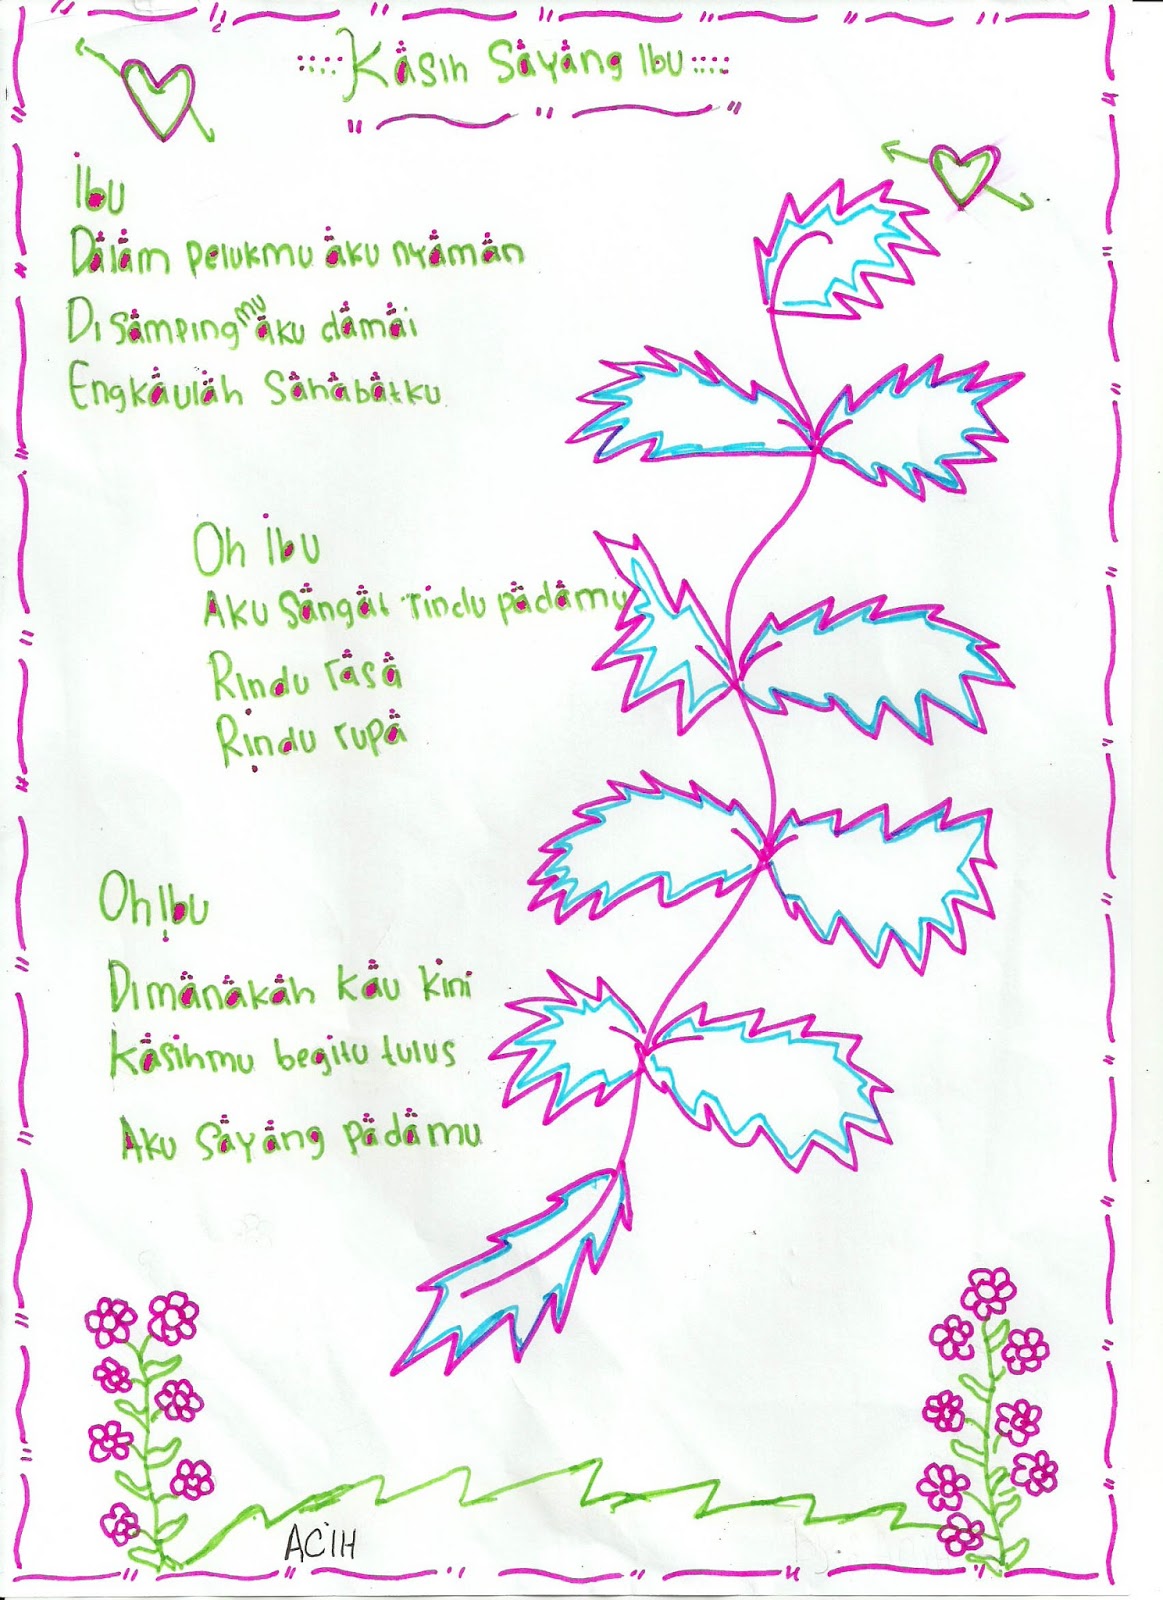 Kasih Sayang Ibu
Ibu
Dalam pelukmu aku nyaman
Di sampingmu aku damai
Engkaulah Sahabatku
Oh Ibu
Aku Sangat rindu padamu
Rindu rasa
Rindu rupa
Oh Ibu
Dimanakah kau kini
Kasihmu begitu tulus
Aku sayang padamu
ACIH